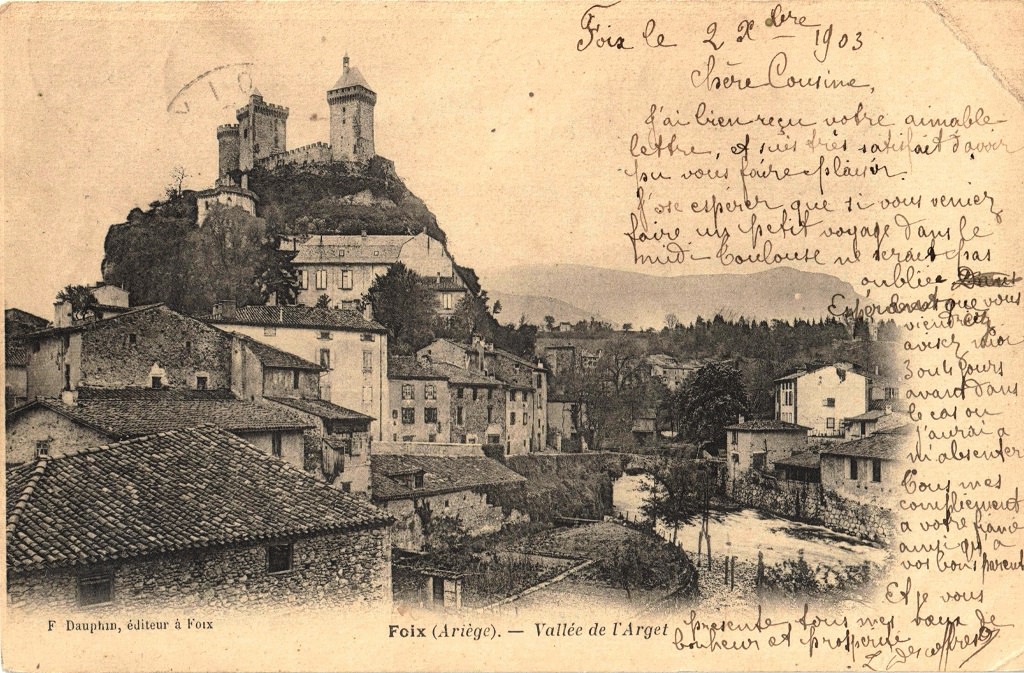 Foix le 2 Xbre 1903
Chère Cousine,
J'ai bien reçu votre aimable
lettre, et suis très satisfait d'avoir
pu vous faire plaisir.
J'ose espérer que si vous veniez
faire un petit voyage dans le
midi Toulouse ne serait pas
oubliée
Espérant que vous
viendrez
avisez moi
3 ou 4 jours
avant dans
le cas ou
j'aurai a
m'absenter
Tous mes
compliements
a votre
ainsi qu'a
vos bons parents
Et je vous
présente tous mes vœux de
bonheur et prospérité
F Dauphin, éditeur à Foix
Foix (Ariège). — Vallée de l'Arget